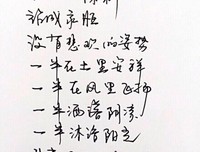 站成永恒
没有悲欢的姿势
一半在土里安详
一半在风里飞扬
一半洒落阴凉
一半沐浴阳光